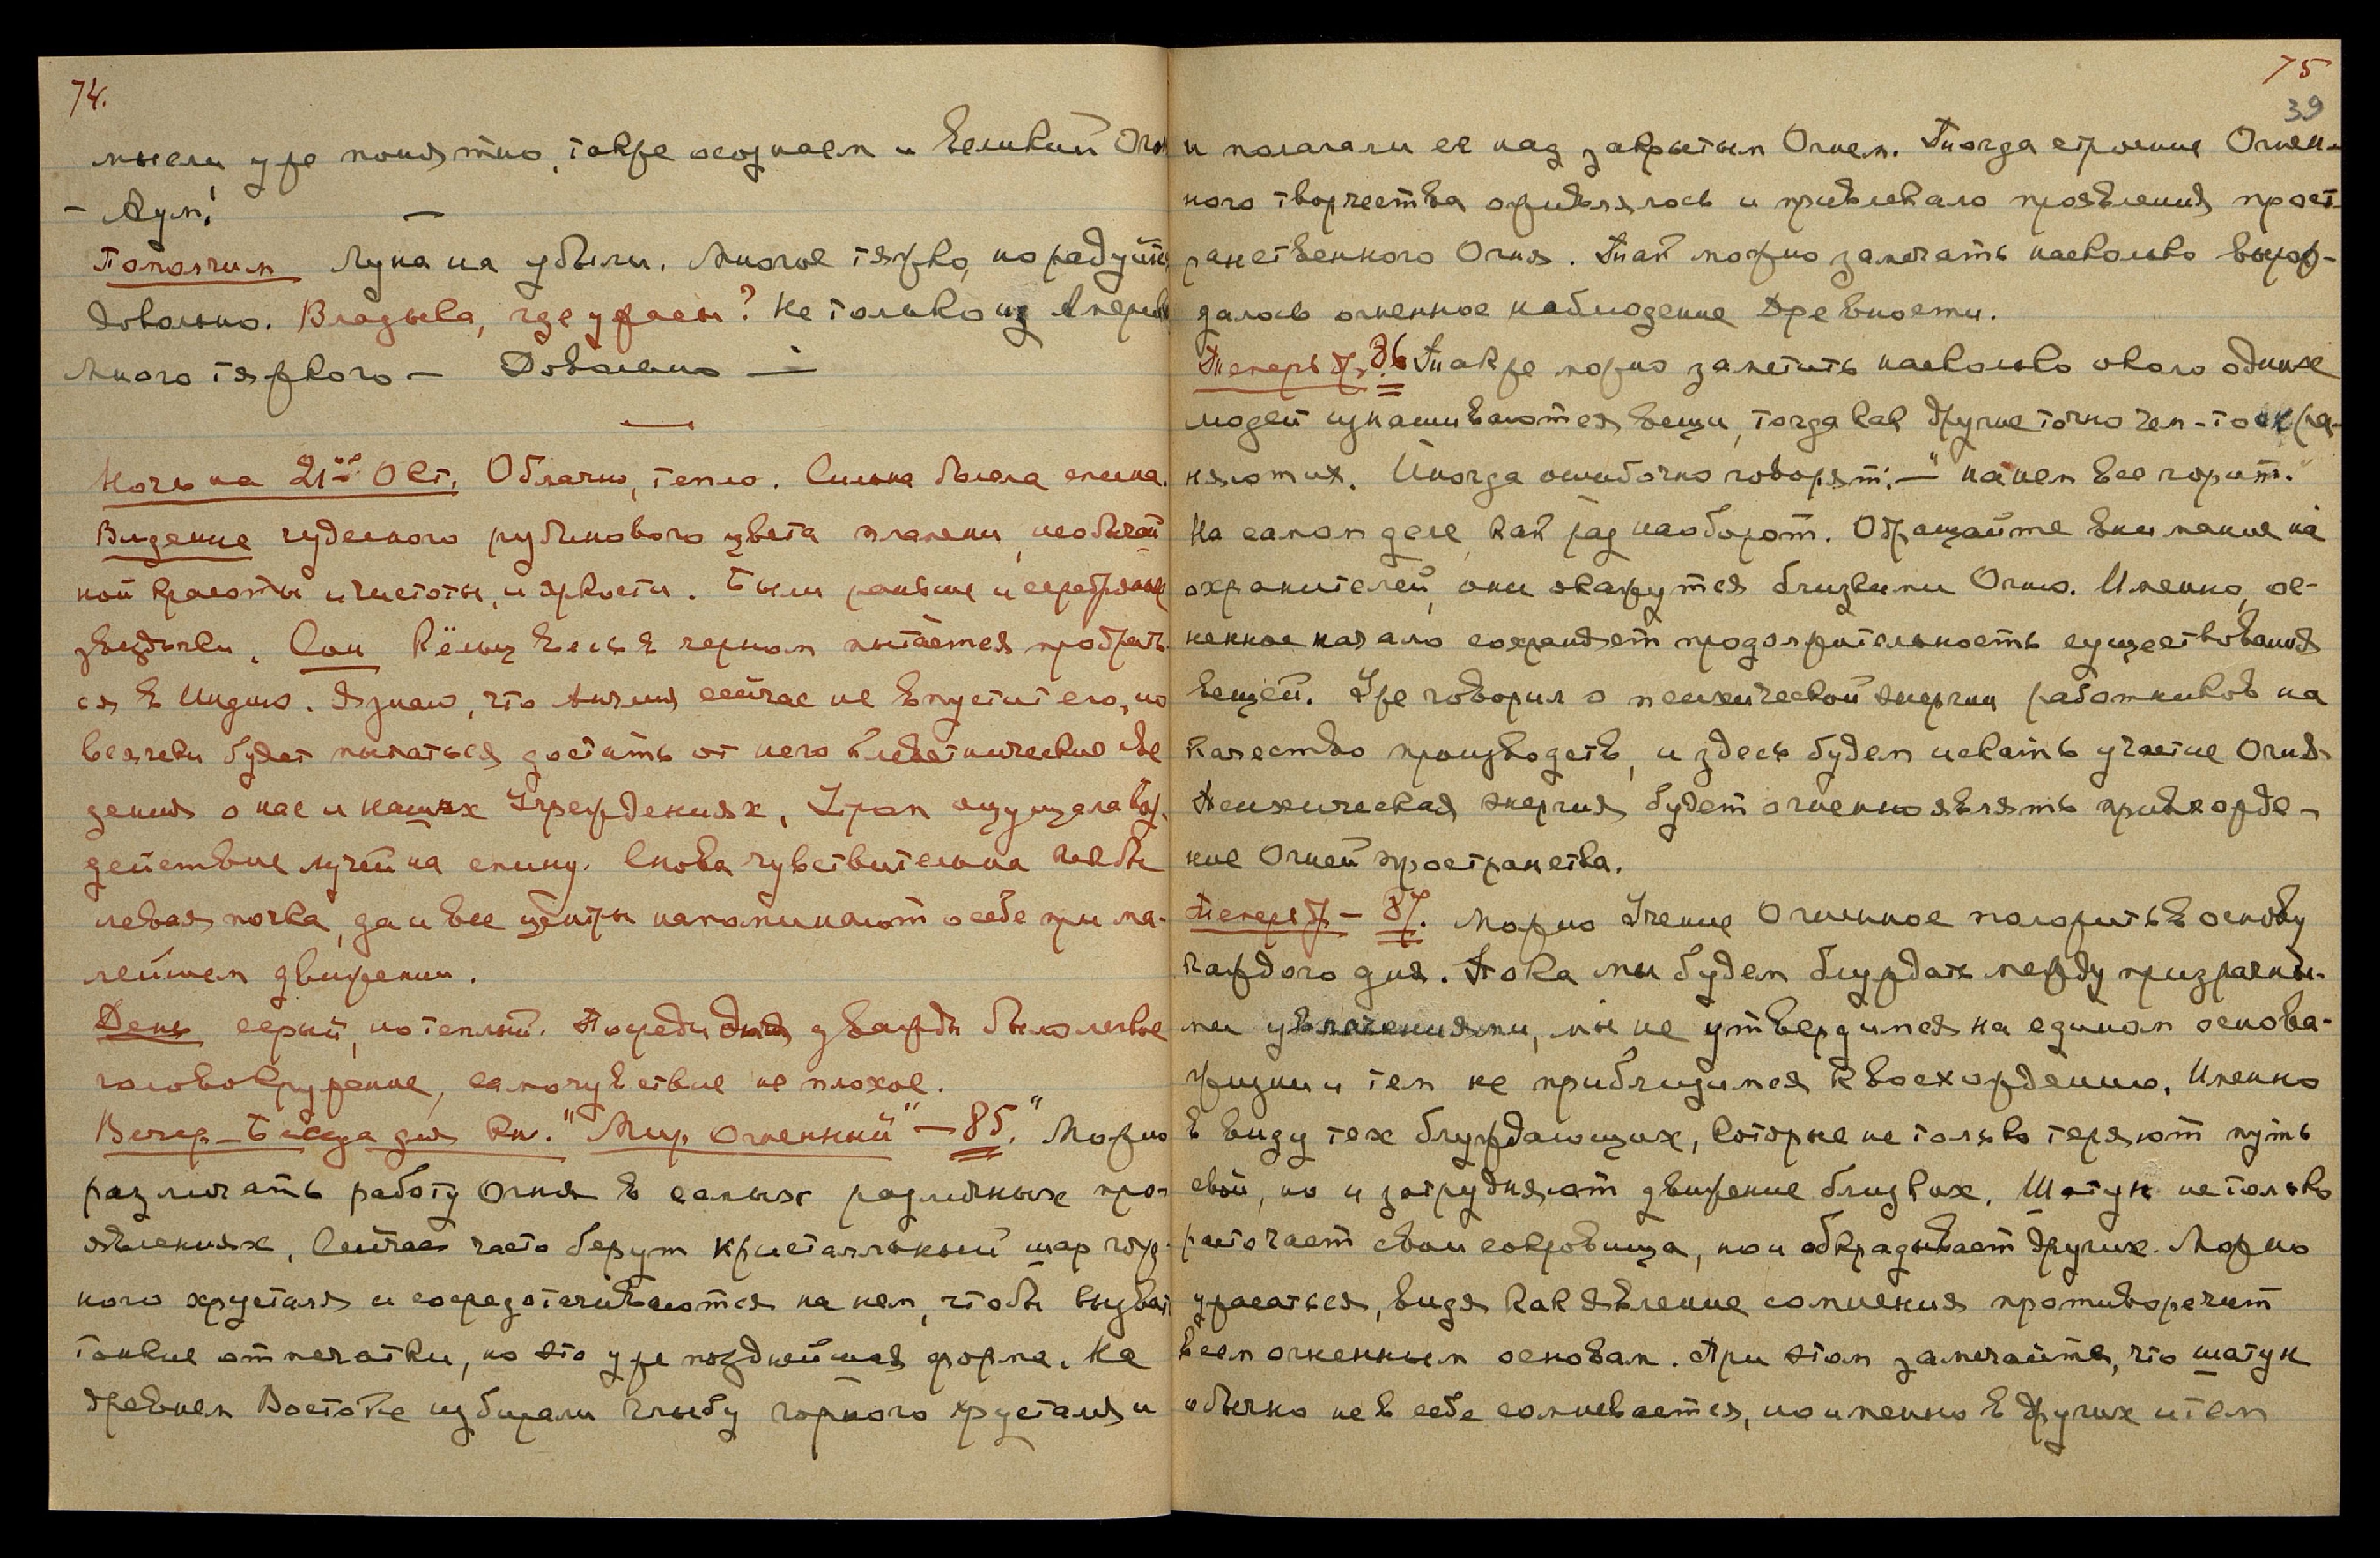 74.
мысли уже понятно, также осознаем и Великий Огонь
- Аум!
Помолчим Луна на убыли. Многое тяжко, но радуйтесь
Довольно. Владыка, где ужасы? Не только из Америки
Много тяжкого — Довольно —
Ночь на 21-ое Окт. Облачно, тепло. Сильна была спина.
Видение чудесного рубинового цвета пламени, необычай
ной красоты и чистоты, и яркости. Были раньше и серебряные
звездочки. Сон Кёльц весь в черном пытается пробрать-
ся в Индию. Я знаю, что Англия сейчас не впустит его, но
всячески будет пытаться достать от него клеветнические све
дения о нас и наших Учреждениях, Утром ощущала воз-
действие лучей на спину. Снова чувствительна как бы
левая почка, да и все центры напоминают о себе при ма-
лейшем движении.
День серый, но теплый. Посреди дня дважды было легкое
головокружение, самочувствие не плохое.
Вечер - Беседа для кн. "Мир Огненный" — 85. " Можно
различать работу Огня в самых различных про-
явлениях. Сейчас часто берут кристальный шар гор-
ного хрусталя и сосредотачиваются на нем, чтобы вызвать
тонкие отпечатки, но это уже позднейшая форма. На
древнем Востоке избирали глыбу горного хрусталя и
75
39
и полагали ее над закрытым Огнем. Тогда строение Огнен-
ного творчества оживлялось и привлекало проявления прост-
ранственного Огня. Так можно замечать насколько вырож-
далось огненное наблюдение Древности.
Теперь 7. 86 Также можно заметить насколько около одних
людей изнашиваются вещи, тогда как другие точно чем-то охра-
няют их. Иногда ошибочно говорят: — "на нем все горит."
На самом деле, как раз наоборот. Обращайте внимание на
охранителей, они окажутся близкими Огню. Именно, ог-
ненное начало сохраняет продолжительность существования
вещей. Уже говорил о психической энергии работников на
качество производств, и здесь будем искать участие Огня
Психическая энергия будет огненно являть привхожде-
ние Огней пространства.
Теперь 7. — 87. Можно Учение Огненное положить в основу
каждого дня. Пока мы будем блуждать между призрачны-
ми увлечениями, мы не утвердимся на едином основа-
жизни и тем не приблизимся к восхождению. Именно
в виду тех блуждающих, которые не только теряют путь
свой, но и затрудняют движение близких. Шатун не только
расточает свои сокровища, но и обкрадывает других. Можно
ужасаться, видя как явление сомнения противоречит
всем огненным основам. При этом замечайте, что шатун
обычно не в себе сомневается, но именно в других и тем